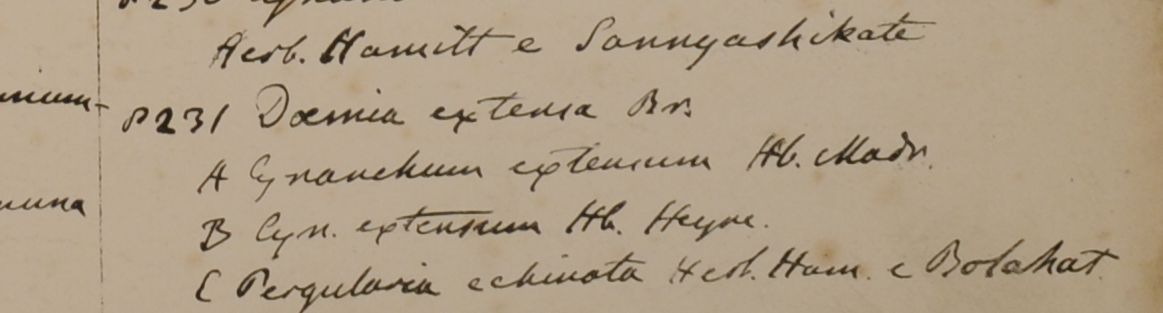 8230
Herb. Hamilt e Sannyashikate
8231 Dœmia extensa Br.
A Cynanchum extensum Hb. Madr.
B Cyn. extensum Hb. Heyne.
C Pergularia echinata Herb. Ham. e Bolahat